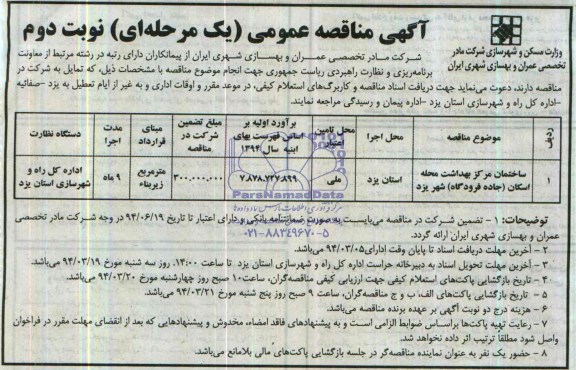 آگهی مناقصه عمومی (یک مرحله‌ای) نوبت دوم
وزارت مسکن و شهرسازی شرکت مادر
تخصصی عمران و بهسازی شهری ایران
شرکت مادر تخصصی عمران و بهسازی شهری ایران از پیمانکاران دارای رتبه در رشته مرتبط از معاونت
برنامه‌ریزی و نظارت راهبردی ریاست جمهوری جهت انجام موضوع مناقصه با مشخصات ذیل، که تمایل به شرکت در
مناقصه دارند، دعوت می‌نماید جهت دریافت اسناد مناقصه و کاربرگ‌های استعلام کیفی، در موعد مقرر و اوقات اداری و به غیر از ایام تعطیل به یزد - صفائیه
-اداره کل راه و شهرسازی استان یزد -اداره پیمان و رسیدگی مراجعه نمایند.
ردیف | موضوع مناقصه | محل اجرا | محل تامین اعتبار | برآورد اولیه بر اساس فهرست بهای ابنیه سال ۱۳۹۴ | مبلغ تضمین شرکت در مناقصه | مبنای قرارداد | مدت اجرا | دستگاه نظارت
۱ | ساختمان مرکز بهداشت محله اسکان (جاده فرودگاه) شهر یزد | استان یزد | ملی | ۷،۸۷۸،۷۲۷،۸۹۹ | ۳۰۰،۰۰۰،۰۰۰ | مترمربع زیربناء | ۹ ماه | اداره کل راه و شهرسازی استان یزد
ParsNamadData
۰۲۱-۸۸۳۴۹۶۷۰-۵
توضیحات: ۱ - تضمین شرکت در مناقصه می‌بایست به صورت ضمانتنامه بانکی و دارای اعتبار تا تاریخ ۹۴/۰۶/۱۹ در وجه شرکت مادر تخصصی
عمران و بهسازی شهری ایران ارائه گردد.
۲ - آخرین مهلت دریافت اسناد تا پایان وقت اداری ۹۴/۰۳/۰۵ می‌باشد.
۳ - آخرین مهلت تحویل اسناد به دبیرخانه حراست اداره کل راه و شهرسازی استان یزد تا ساعت ۱۴:۰۰ روز سه شنبه مورخ ۹۴/۰۳/۱۹ می‌باشد.
۴ - تاریخ بازگشایی پاکت‌های استعلام کیفی جهت ارزیابی کیفی مناقصه‌گران، ساعت ۱۰ صبح روز چهارشنبه مورخ ۹۴/۰۳/۲۰ می‌باشد.
۵ - تاریخ بازگشایی پاکات‌های الف، ب و ج مناقصه گران، ساعت ۹ صبح روز پنج شنبه مورخ ۹۴/۰۳/۲۱ می‌باشد.
۶ - هزینه درج دو نوبت آگهی بر عهده برنده مناقصه می‌باشد.
۷ - رعایت تهیه پاکت‌ها براساس ضوابط الزامی است و به پیشنهادهای فاقد امضاء، مخدوش و پیشنهادهایی که بعد از انقضای مهلت مقرر در فراخوان
واصل شود مطلقا ترتیب اثر داده نخواهد شد.
۸ - حضور یک نفر به عنوان نماینده مناقصه‌گر در جلسه بازگشایی پاکت‌های مالی بلامانع می‌باشد.